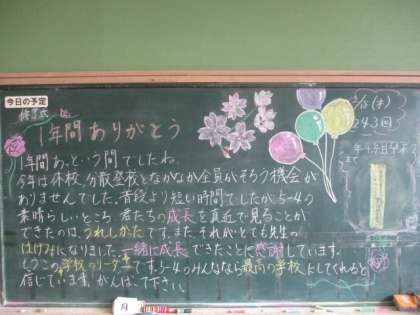 今日の予定
修了式
1年間ありがとう
1年間あっという間でしたね。
今年は休校、分散登校となかなか全員がそろう機会が
ありませんでした。普段より短い時間でしたが、5-4の
素晴らしいところ、君たちの成長を真近で見ることが
できたのは、うれしかったです。またそれがとても先生の
はげみになりました。一緒に成長できたことに感謝しています。
もうこの学校のリーダーです。5-4のみんななら最高の学校にしてくれると
信じています。がんばって下さい。
243
月